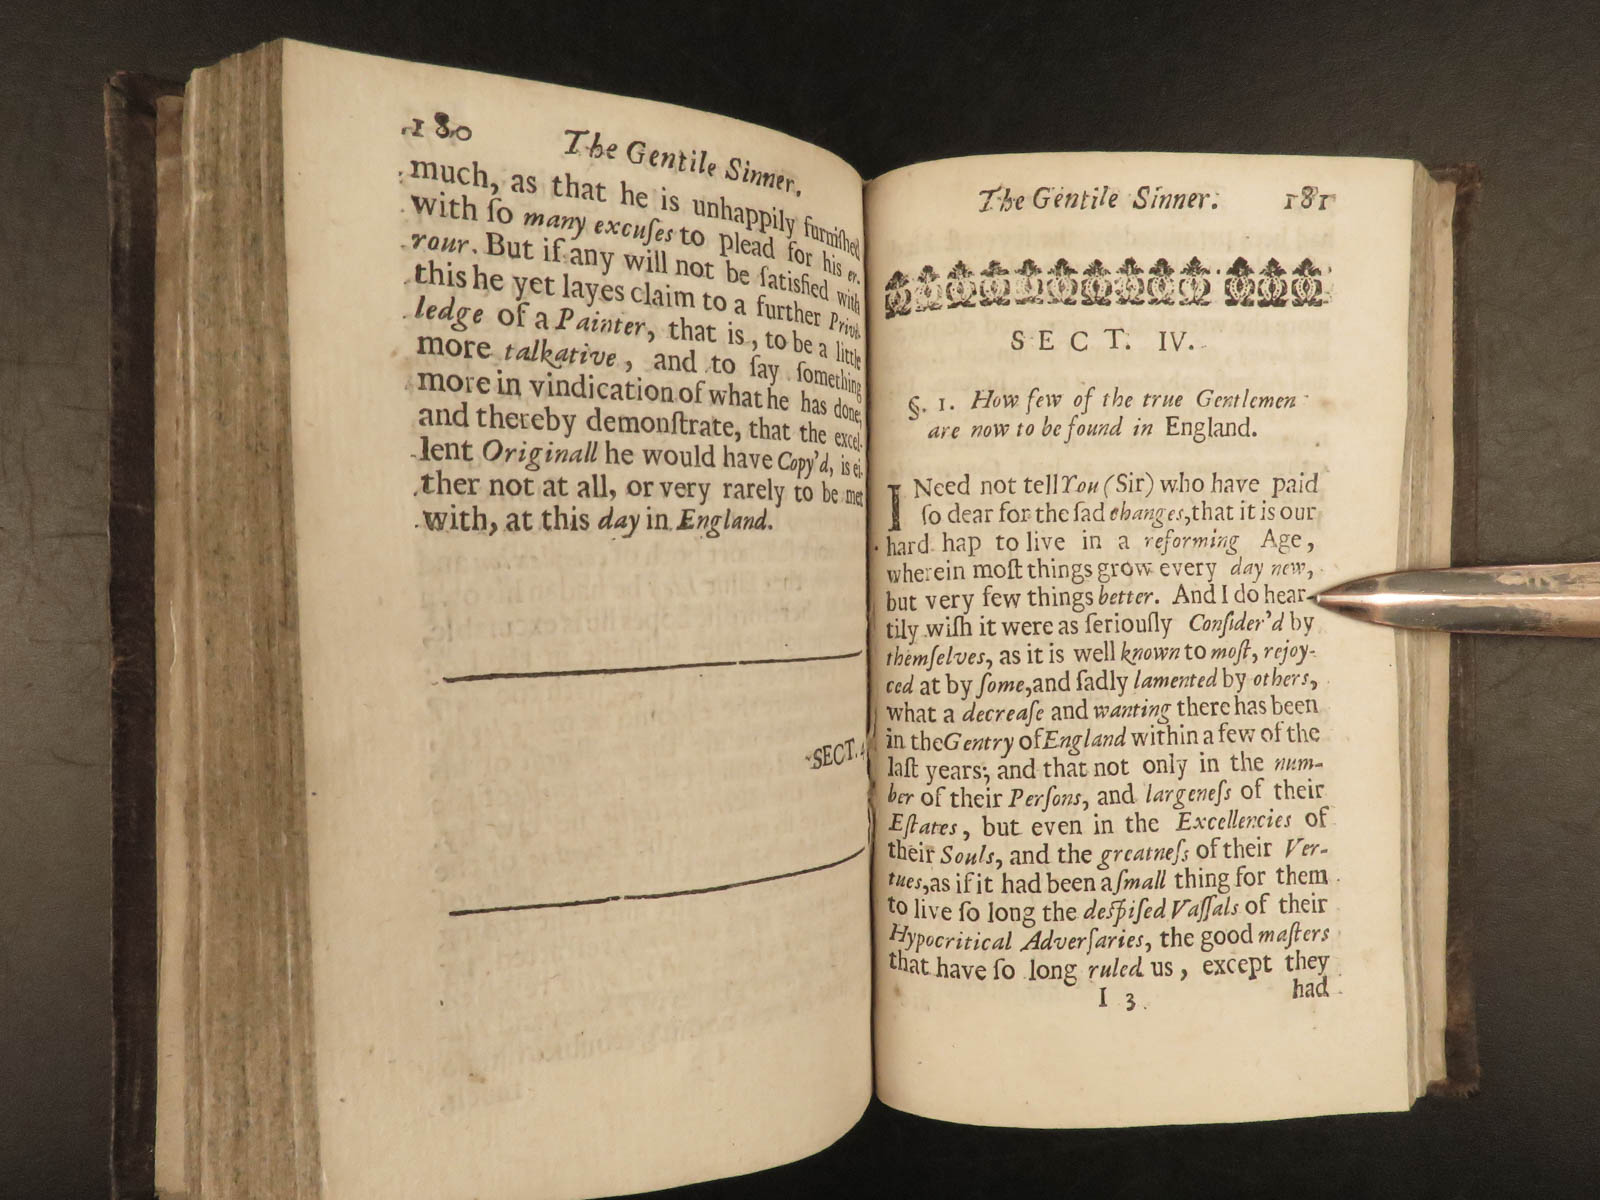 180 The Gentile Sinner.
much, as that he is unhappily furniſhed
with ſo many excuſes to plead for his er-
rour. But if any will not be ſatisfied with
this he yet layes claim to a further Privi-
ledge of a Painter, that is, to be a little
more talkative, and to ſay ſomething
more in vindication of what he has done;
and thereby demonſtrate, that the excel-
lent Originall he would have Copy'd, is ei-
ther not at all, or very rarely to be met
with, at this day in England.
SECT. 4
The Gentile Sinner. 181
SECT. IV.
§. 1. How few of the true Gentlemen
are now to be found in England.
I Need not tell You (Sir) who have paid
ſo dear for the ſad changes, that it is our
hard hap to live in a reforming Age,
wherein moſt things grow every day new,
but very few things better. And I do hear-
tily wiſh it were as ſeriouſly Conſider'd by
themſelves, as it is well known to moſt, rejoy-
ced at by ſome, and ſadly lamented by others,
what a decreaſe and wanting there has been
in the Gentry of England within a few of the
laſt years; and that not only in the num-
ber of their Perſons, and largeneſs of their
Eſtates, but even in the Excellencies of
their Souls, and the greatneſs of their Ver-
tues, as if it had been a ſmall thing for them
to live ſo long the deſpiſed Vaſſals of their
Hypocritical Adverſaries, the good maſters
that have ſo long ruled us, except they
I 3 had